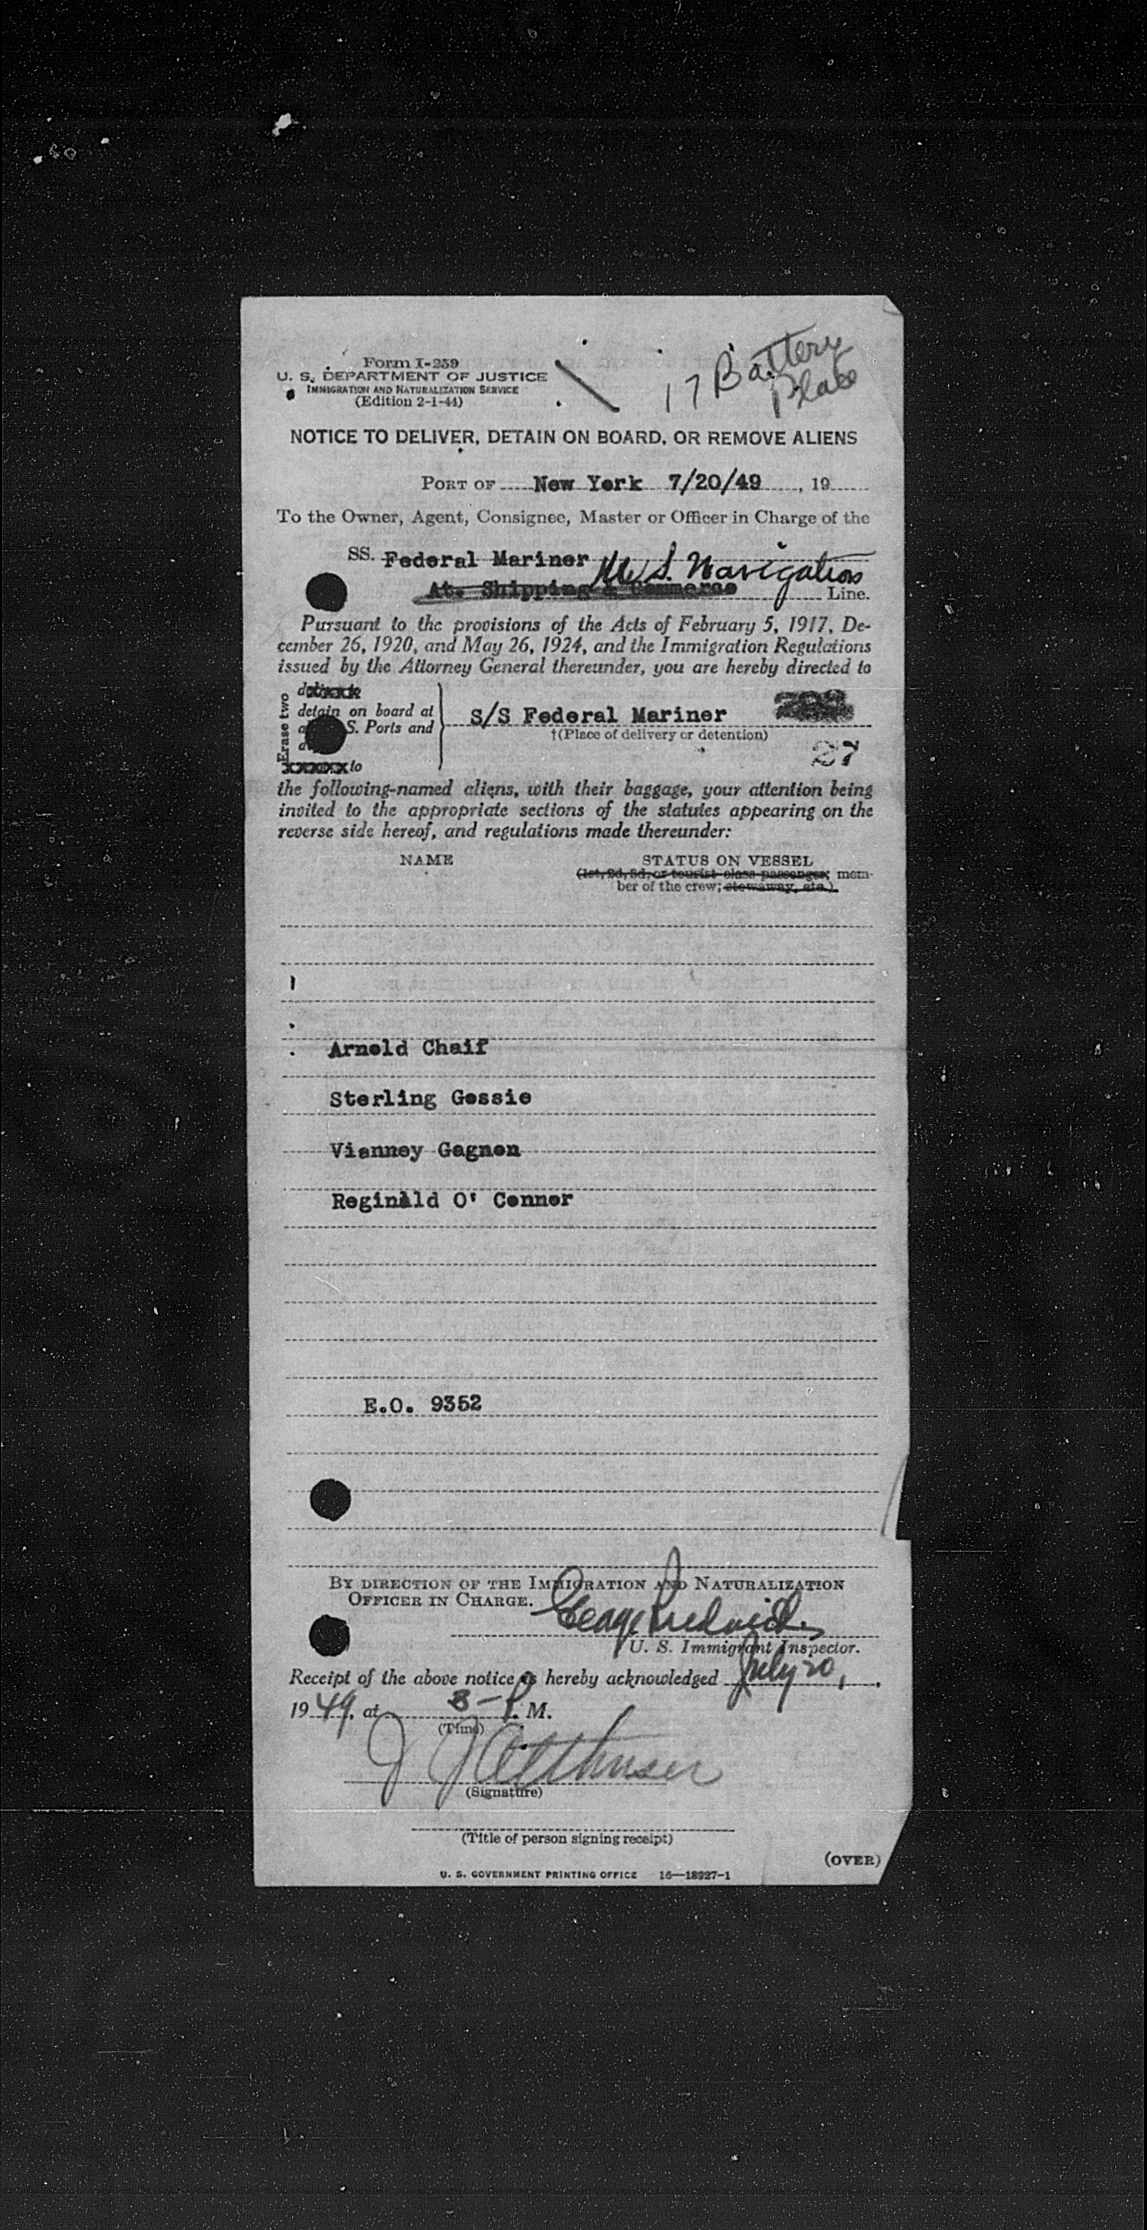 Form I-259
U. S. DEPARTMENT OF JUSTICE
IMMIGRATION AND NATURALIZATION SERVICE
(Edition 2-1-44)
17 Battery
Place
NOTICE TO DELIVER, DETAIN ON BOARD, OR REMOVE ALIENS
PORT OF New York 7/20/49, 19
To the Owner, Agent, Consignee, Master or Officer in Charge of the
SS. Federal Mariner S. Navigation
At. Shipping & Commerce Line.
Pursuant to the provisions of the Acts of February 5, 1917, De-
cember 26, 1920, and May 26, 1924, and the Immigration Regulations
issued by the Attorney General thereunder, you are hereby directed to
Erase two
detain on board at
S. Ports and
S/S Federal Mariner
†(Place of delivery or detention)
27
xxxxxx to
the following-named aliens, with their baggage, your attention being
invited to the appropriate sections of the statutes appearing on the
reverse side hereof, and regulations made thereunder:
NAME STATUS ON VESSEL
(1st, 2d, 3d, or tourist class passenger; mem-
ber of the crew; stowaway, etc.)
Arnold Chaif
Sterling Gossie
Vianney Gagnon
Reginald O' Connor
E.O. 9352
BY DIRECTION OF THE IMMIGRATION AND NATURALIZATION
OFFICER IN CHARGE.
George
U. S. Immigrant Inspector.
Receipt of the above notice is hereby acknowledged July 20,
1949, at 3 - P. M.
(Time)
J J
(Signature)
(Title of person signing receipt)
(OVER)
U. S. GOVERNMENT PRINTING OFFICE 16—18927-1